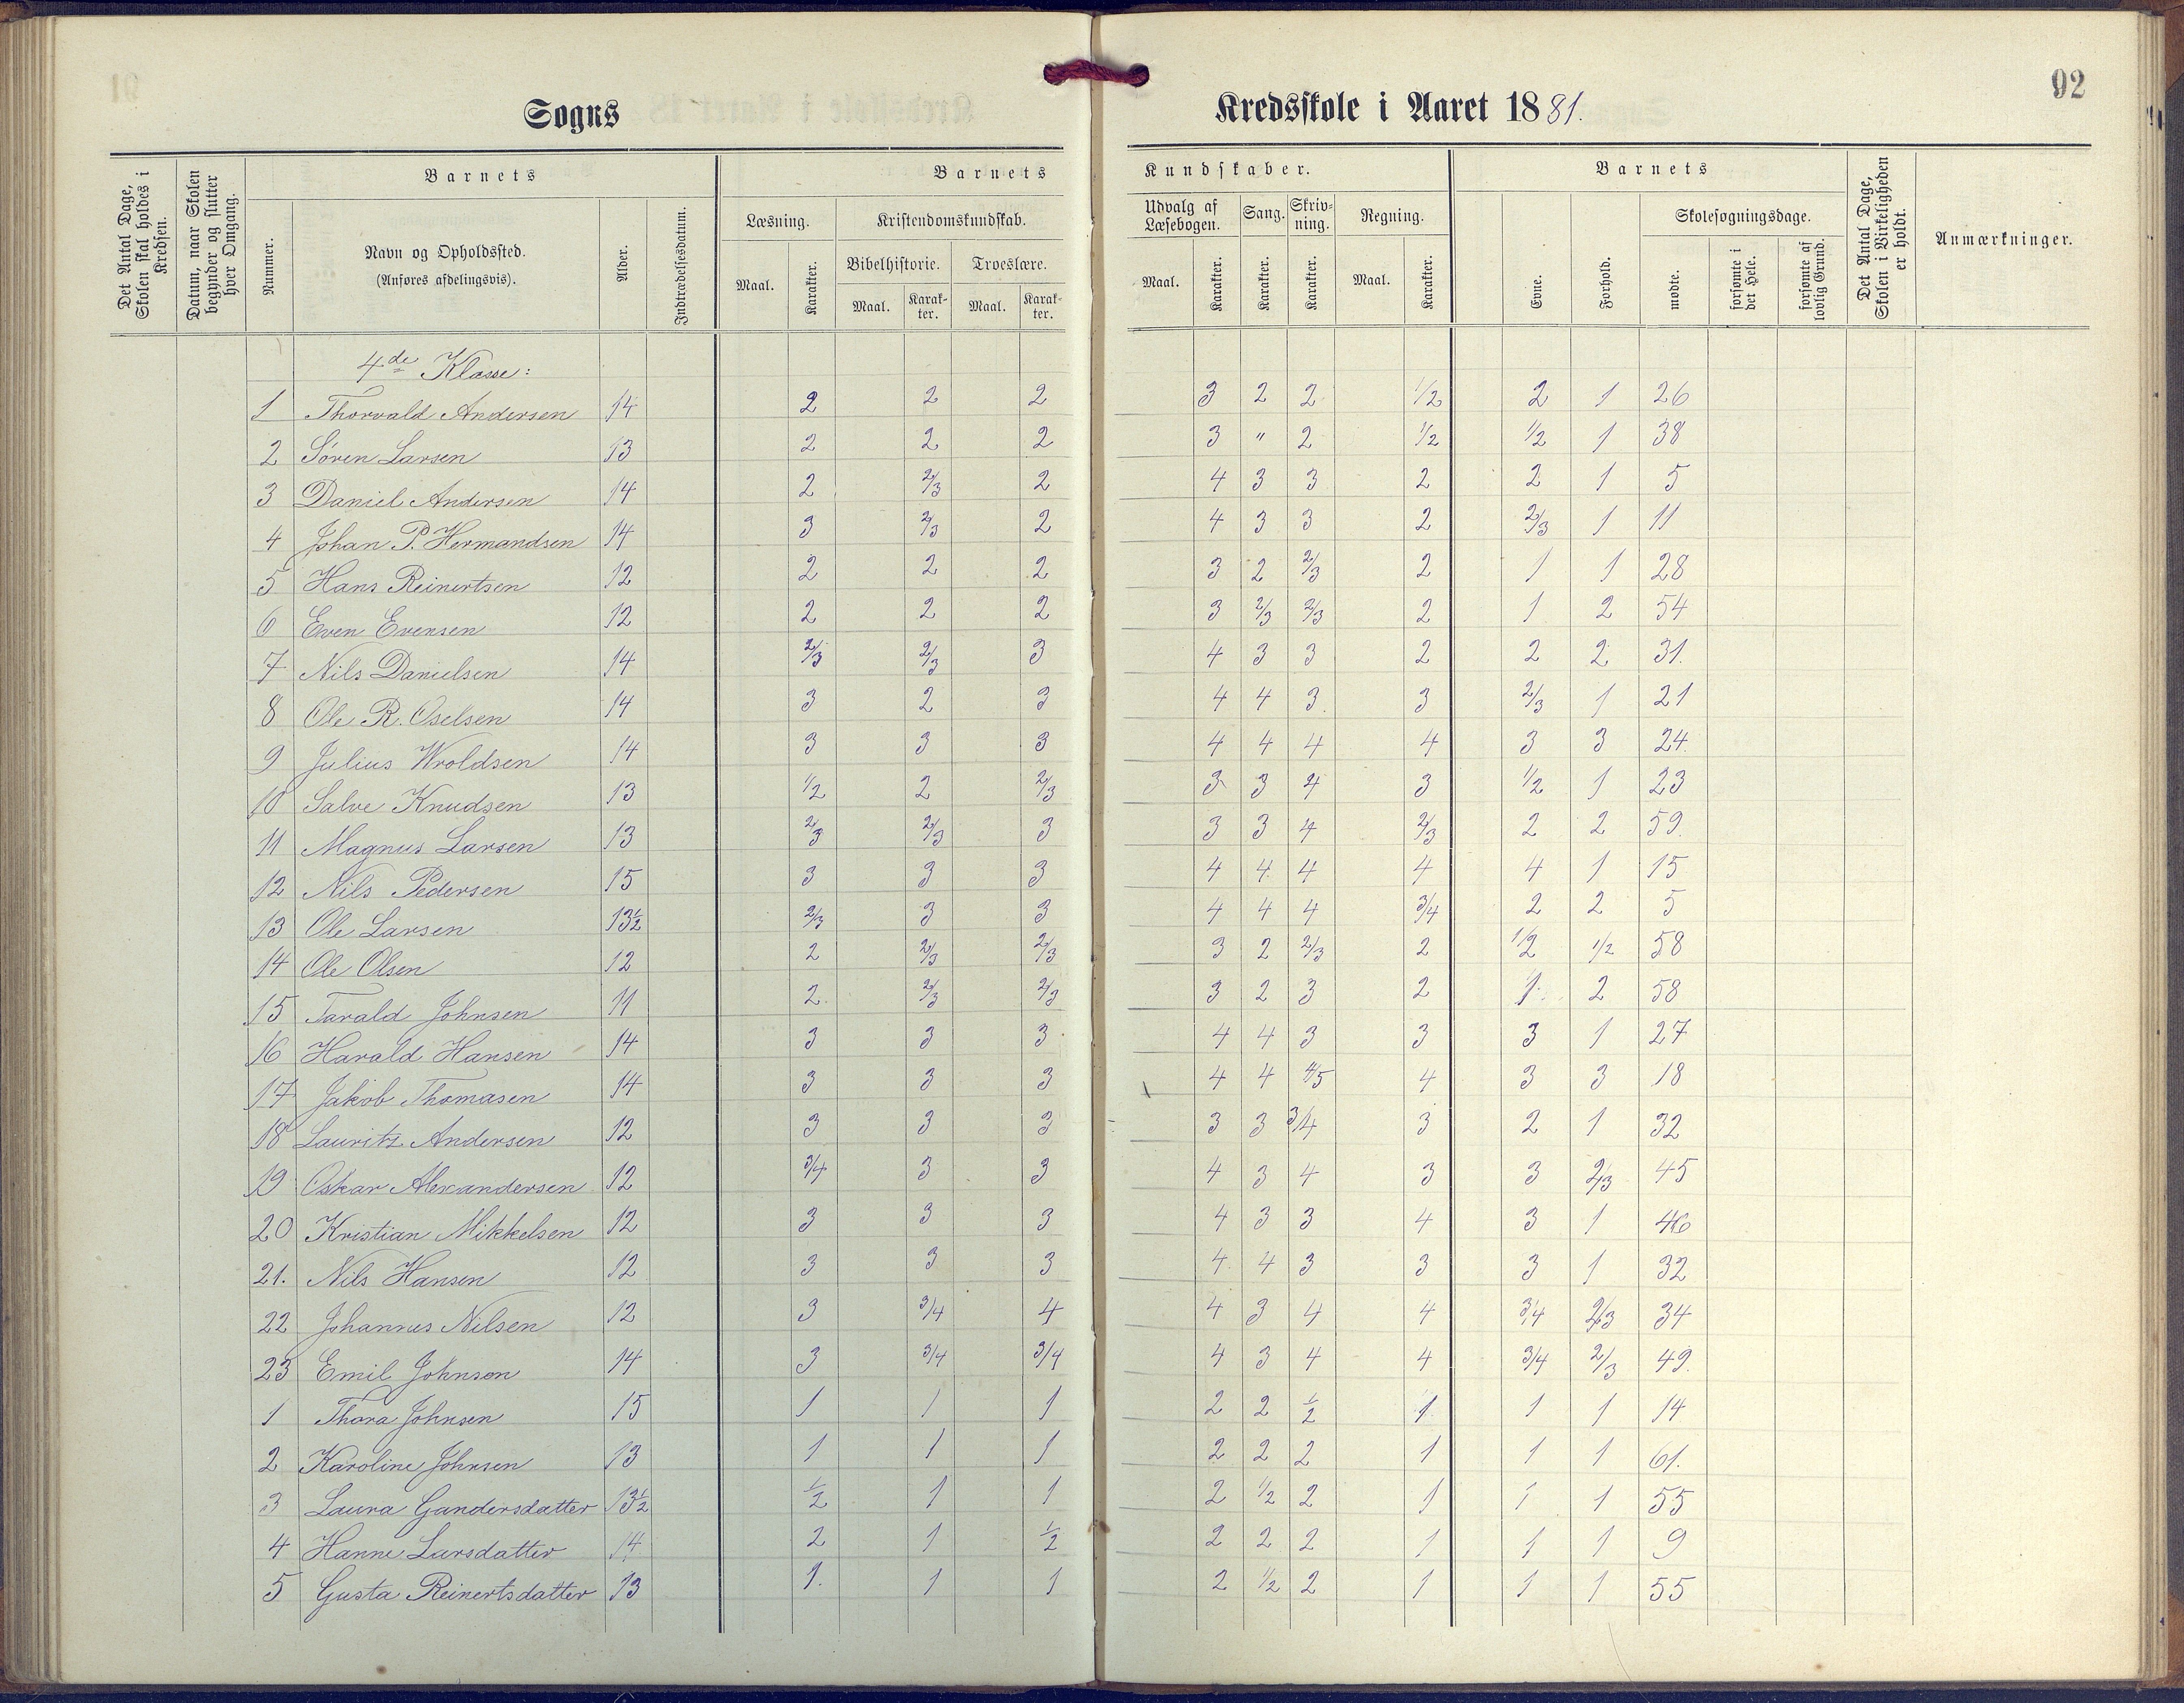 92
Sogns Kredsskole i Aaret 1881.
Det Antal Dage, Skolen skal holdes i Kredsen.
Datum, naar Skolen begynder og slutter hver Omgang.
Barnets
Nummer.
Navn og Opholdssted.
(Anføres afdelingsvis).
Alder.
Indtrædelsesdatum.
Barnets Kundskaber.
Læsning.
Maal. Karakter.
Kristendomskundskab.
Bibelhistorie. Troeslære.
Maal. Karakter. Maal. Karakter.
Udvalg af Læsebogen.
Maal. Karakter.
Sang.
Karakter.
Skrivning.
Karakter.
Regning.
Maal. Karakter.
Barnets
Evne.
Forhold.
Skolesøgningsdage.
mødte.
forsømte i det Hele.
forsømte af lovlig Grund.
Det Antal Dage, Skolen i Virkeligheden er holdt.
Anmærkninger.
4de Klasse:
1 Thorvald Andersen 14 2 2 2 3 2 2 1/2 2 1 26
2 Søren Larsen 13 2 2 2 3 " 2 1/2 1/2 1 38
3 Daniel Andersen 14 2 2/3 2 4 3 3 2 2 1 5
4 Johan P. Hermandsen 14 3 2/3 2 4 3 3 2 2/3 1 11
5 Hans Reinertsen 12 2 2 2 3 2 2/3 2 1 1 28
6 Even Evensen 12 2 2 2 3 2/3 2/3 2 1 2 54
7 Nils Danielsen 14 2/3 2/3 3 4 3 3 2 2 2 31.
8 Ole R. Oselsen 14 3 2 3 4 4 3. 3 2/3 1 21
9 Julius Wroldsen 14 3 3 3 4 4 4 4 3 3 24.
10 Salve Knudsen 13 1/2 2 2/3 3 3 4 3 1/2 1 23
11 Magnus Larsen 13 2/3 2/3 3 3 3 4 2/3 2 2 59.
12 Nils Pedersen 15 3 3 3 4 4 4 4 4 1 15
13 Ole Larsen 13½ 2/3 3 3 4 4 4 3/4 2 2 5
14 Ole Olsen 12 2 2/3 2/3 3 2 2/3 2 1/2 1/2 58
15 Tarald Johnsen 11 2. 2/3 2/3 3 2 3 2 1 2 58
16 Harald Hansen 14 3 3 3 4 4 3 3 3 1 27
17 Jakob Thomasen 14 3 3 3 4 4 4/5 4 3 3 18
18 Lauritz Andersen 12 3 3 3 3 3 3/4 3 2 1 32
19 Oskar Alexandersen 12 3/4 3 3 4 3 4 3 3 2/3 45
20 Kristian Mikkelsen 12 3 3 3 4 3 3 4 3 1 46
21. Nils Hansen 12 3 3 3 4 4 3 3 3 1 32
22 Johannes Nilsen 12 3 3/4 4 4 3 4 4 3/4 2/3 34
23 Emil Johnson 14 3 3/4 3/4 4 3 4 4 3/4 2/3 49.
1 Thora Johnsen 15 1 1 1 2 2 1/2 1 1 1 14
2 Karoline Johnsen 13 1 1 1 2 2 2 1 1 1 61.
3 Laura Gundersdatter 13½ 1/2 1 1 2 1/2 2 1 1 1 55
4 Hanne Larsdatter 14 2 1 1/2 2 2 2 1 1 1 9
5 Gusta Reinertsdatter 13 1. 1 1 2 1/2 2 1 1 1 55